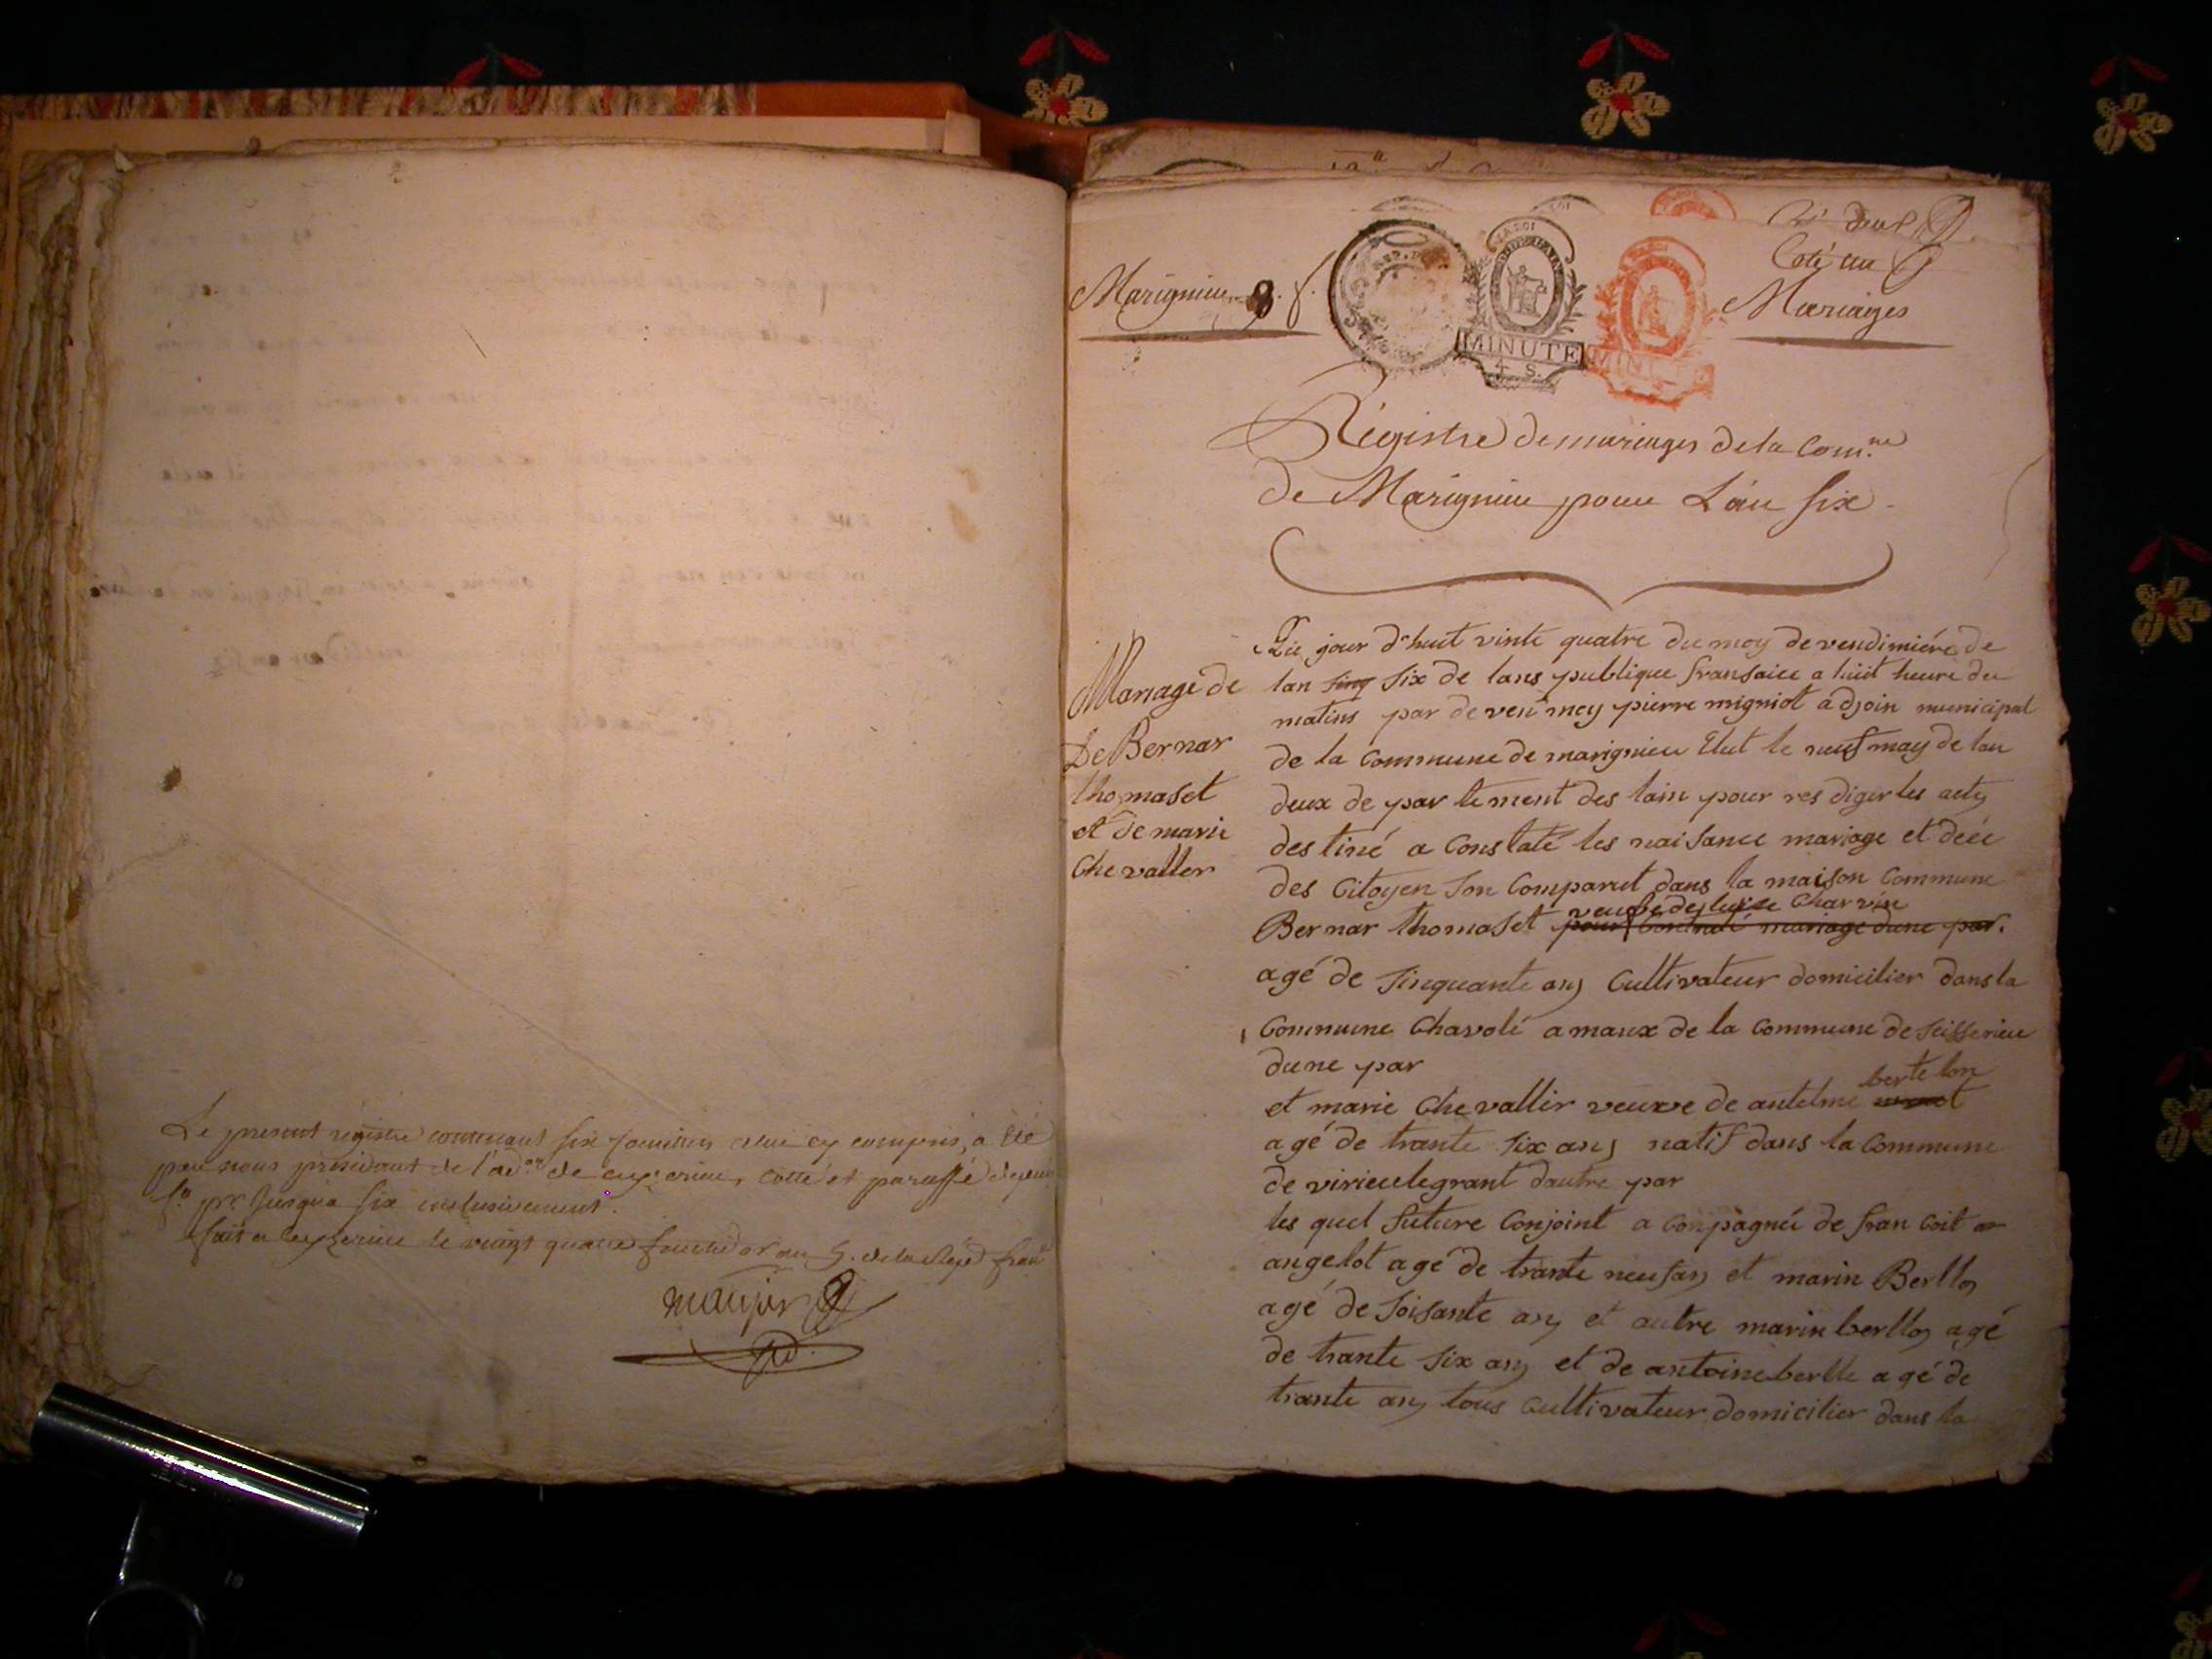 Le present régistre contenant six feuillets celui cy compris, a été
par nous président de l'ad.on de ceyzerieu, cotté et paraffé depuis
f.o pr. Jusqu'a six inclusivement.
fait a ceyzerieu le vingt quatre fructidor an 5. de la Rép. franc
Marignieu
REP.
LA LOI
MINUTE
4 S.
LA LOI
MINUTE
deux
Coté un
Mariages
Régistre de mariages de la Com.ne
de Marignieu pour L'an six.
Mariage de
De Bernar
thomaset
et de marie
Chevallier
jour d'huit vinte quatre du moy de vendimiére de
lan sinq six de lans publique fransaice a huit heure du
matins par deven moy pierre migniot adjoin municipal
de la Commune de marignieu Elut le neuf may de lan
deux de par tement des lain pour res diger les actes
des tiné a Constaté les naisance mariage et déée
des Citoyen Son Comparut dans la maison Commune
Bernar thomaset pour Contraté mariage dune par.
veufe de Charvin
agé de Sinquante ans Cultivateur domicilier dans la
Commune Chavolé a maux de la Commune de Seisserieu
dune par
et marie Chevallir veuve de antelme
berte lon
agé de trante Six ans natif dans la Commune
de virieulegrant dautre par
les quel future Conjoint a Conpagnée de fran Coit
angelot agé de trante neuf ans et marin Berllon
agé de Soisante ans et autre marin berllon agé
de trante Six ans et de antoine berlle agé de
trante ans tous Cultivateur domicilier dans la